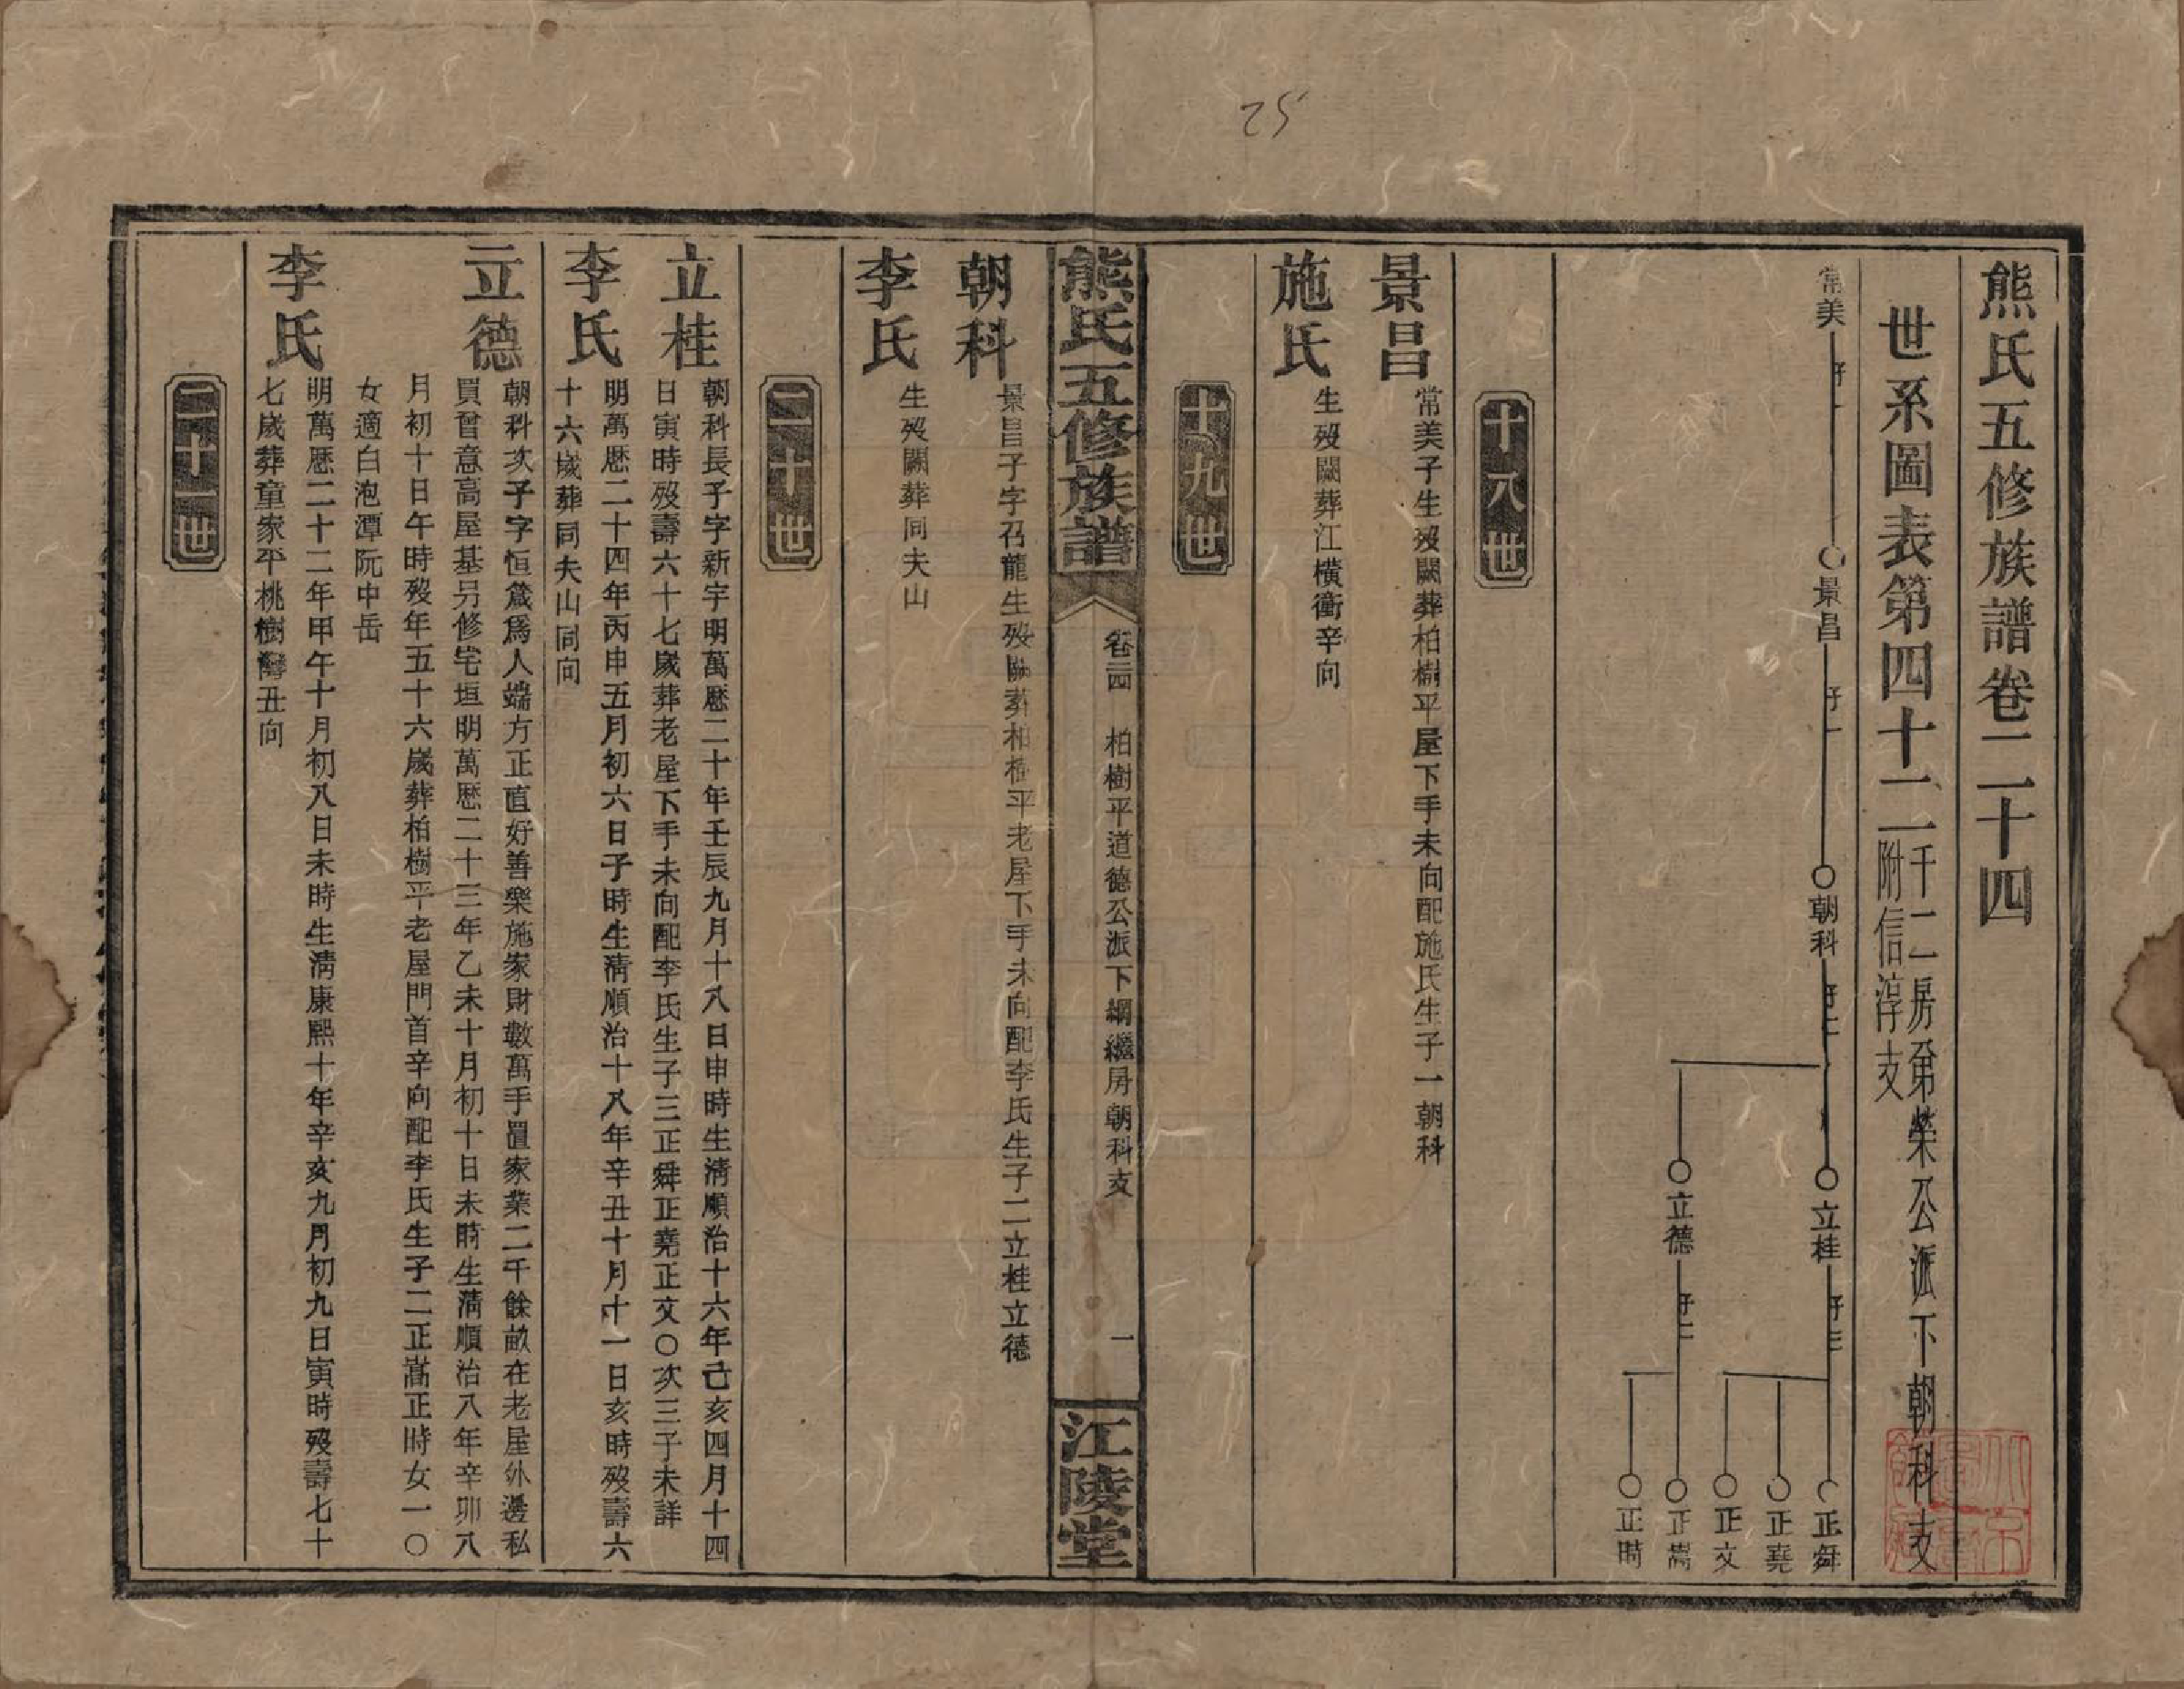 25
熊氏五修族譜卷二十四
世系圖表第四十二
千二房第榮公派下朝科支
附信淳支
常美 子一 ○景昌 子一 ○朝科 子二 ○立桂 子三 ○正舜
○正堯
○正文
○立德 子二 ○正嵩
○正時
十八世
景昌 常美子生歿闕葬柏樹平屋下手未向配施氏生子一朝科
施氏 生歿闕葬江橫衝辛向
十九世
熊氏五修族譜 卷二十四 柏樹平道德公派下綱繼房朝科支 一 江陵堂
朝科 景昌子字召龍生歿闕葬柏樹平老屋下手未向配李氏生子二立桂立德
李氏 生歿闕葬同夫山
二十世
立桂 朝科長子字新宇明萬歷二十年壬辰九月十八日申時生清順治十六年己亥四月十四
日寅時歿壽六十七歲葬老屋下手未向配李氏生子三正舜正堯正文○次三子未詳
李氏 明萬歷二十四年丙申五月初六日子時生清順治十八年辛丑十月十一日亥時歿壽六
十六歲葬同夫山同向
立德 朝科次子字恒箴爲人端方正直好善樂施家財數萬手置家業二千餘畝在老屋外邊私
買曾意高屋基另修宅垣明萬歷二十三年乙未十月初十日未時生清順治八年辛卯八
月初十日午時歿年五十六歲葬柏樹平老屋門首辛向配李氏生子二正嵩正時女一○
女適白泡潭阮中岳
李氏 明萬歷二十二年甲午十月初八日未時生清康熙十年辛亥九月初九日寅時歿壽七十
七歲葬童家平桃樹灣丑向
二十一世